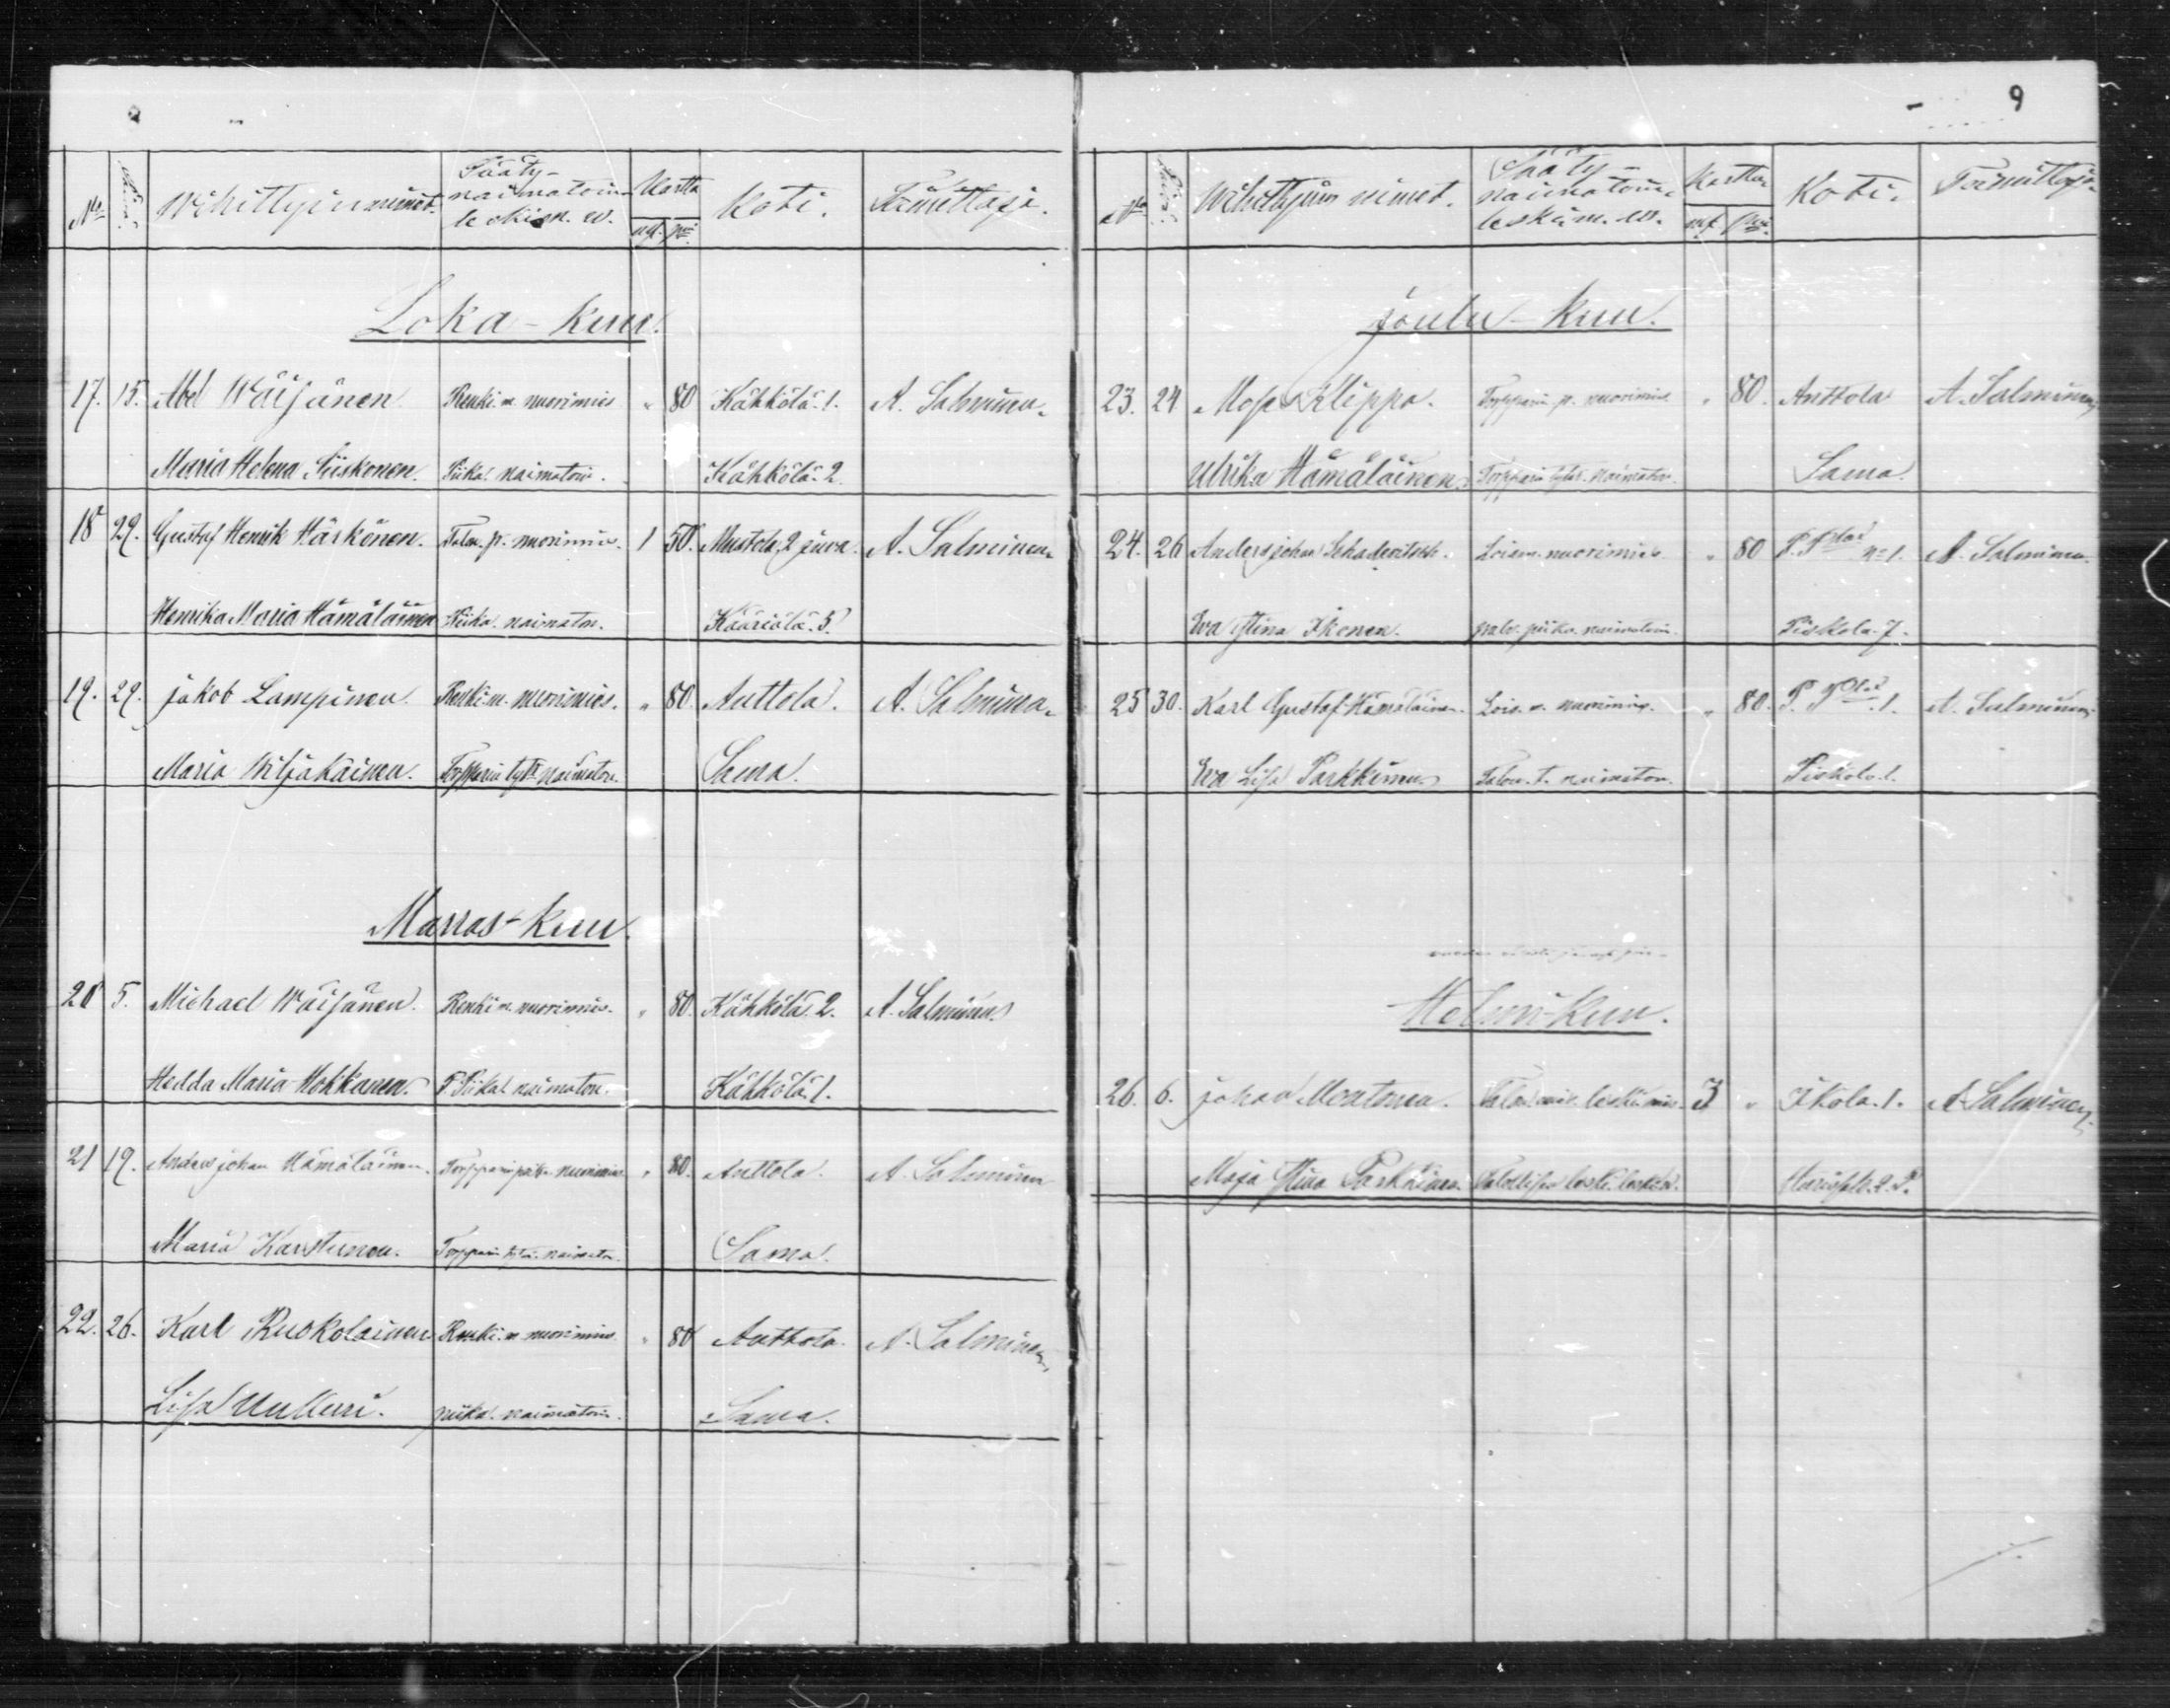 No Wihittyin nimet. Sääty- naimatoin leskim. w. Kartta mk. pni Koti. Toimittaja.
Loka-kuu.
17. 15. Abel Wäisänen Renki m. nuorimies „ 80 Kähkölä. 1. A. Salminen
Maria Helena Siiskonen. Piika naimatoin. Kähkölä 2
18 29. Gustaf Henrik Härkönen. Talon. p. nuorimies. 1 50. Mustola, 2 juva. A. Salminen
Henrika Maria Hämäläinen Piika. naimaton. Kääriälä. 5.
19. 29. jakob Lampinen Renki m. nuorimies. „ 80 Anttola. A. Salminen
Maria Wiljakainen. Torpparin tytt. naimaton. Sama.
Marras-kuu.
20 5. Michael Wäisänen. Renki m. nuorimies. „ 80. Kähkölä. 2. A. Salminen
Hedda Maria Hokkanen. P. Piika naimaton. Kähkölä. 1.
21 19. Anders johan Hämäläinen. Torpparin poika nuorimies „ 80. Anttola. A. Salminen
Maria Karstunen. Torpparin tytär. naimaton. Sama.
22. 26. Karl Ruokolainen Renki. m nuorimies „ 80 Anttola. A. Salminen
Lisa Ukkuri. piika. naimatoin. Sama.
9
No Wihittyin nimet. Sääty- naimatoin leskim. w. Kartta mk pni. Koti. Toimittaja.
joulu-kuu.
23. 24 Klippo. Torpparin p. nuorimies. „ 80. Anttola A. Salminen
Ulrika Hämäläinen. Torpparin tytär. naimaton. Sama
24. 26 Anders johan Lois m. nuorimies. „ 80 No 1. A. Salminen
Eva Stina Ikonen. palv. piika. naimatoin. Piskola. 7.
25 30. Karl Gustaf Hämäläinen. Lois. m. nuorimies. „ 80. 1. A. Salminen
Eva Lisa Parkkinen Talon. t. naimaton. Piskola. 1.
Helmi-kuu.
26. 6. johan Montonen. leskimies. 3 „ Ikola. 1. A. Salminen
Maja Stina leski. 2.